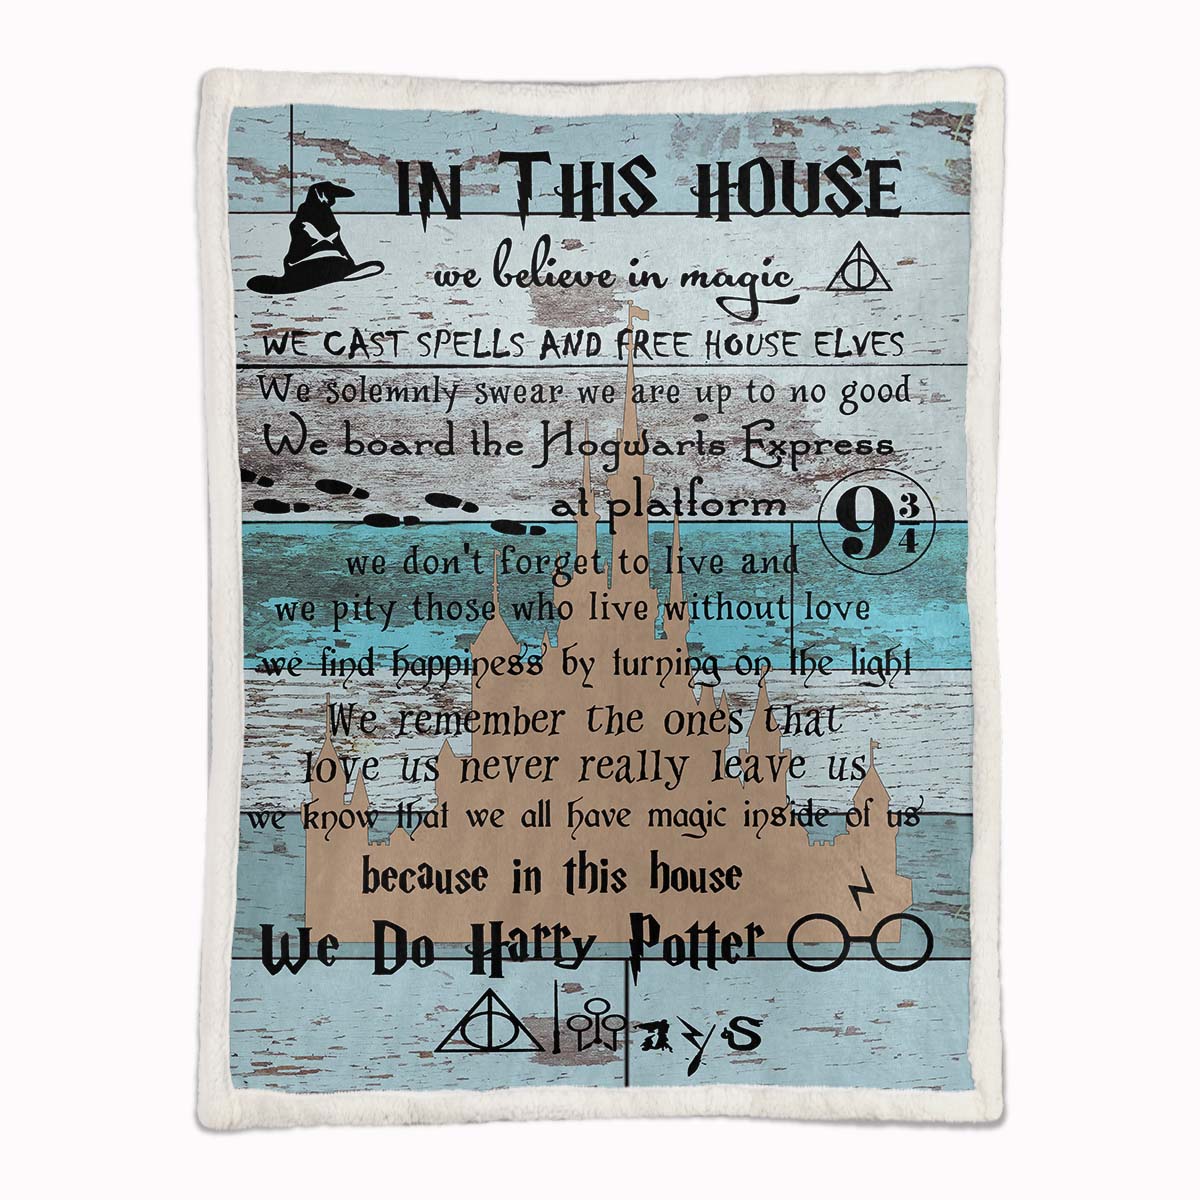 IN THIS HOUSE
we believe in magic
WE CAST SPELLS AND FREE HOUSE ELVES
We solemnly swear we are up to no good
We board the Hogwarts Express
at platform 9 3/4
we don't forget to live and
we pity those who live without love
we find happiness by turning on the light
We remember the ones that
love us never really leave us
we know that we all have magic inside of us
because in this house
We Do Harry Potter
Always